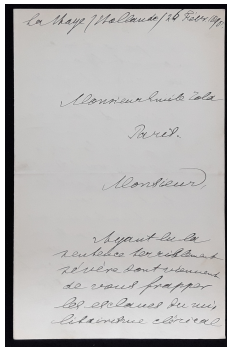 La Haye / Hollande / 26 Févr 189
Monsieur Emile Zola
Paris.
Monsieur,
Ayant lu la
sentence terriblement
sévère dont viennent
de vous frapper
les esclaves du mi
litarisme clérical